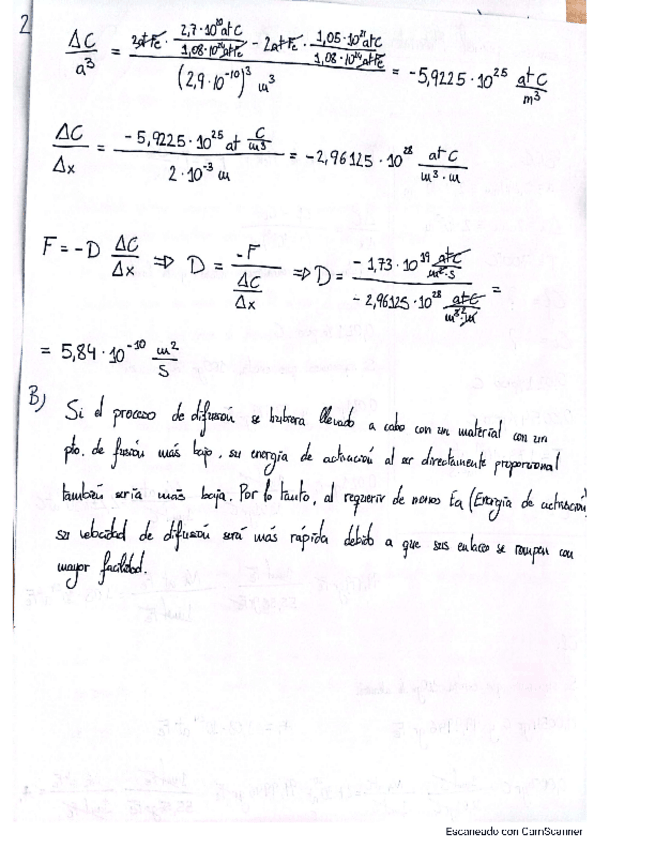 2
ΔC/a³ = (2atFe · 2,7·10²⁰atC/1,08·10²⁴atFe - 2atFe · 1,05·10²¹atC/1,08·10²⁴atFe)/(2,9·10⁻¹⁰)³ m³ = -5,9225·10²⁵ atC/m³
ΔC/Δx = (-5,9225·10²⁵ at C/m³)/(2·10⁻³ m) = -2,96125·10²⁸ atC/(m³·m)
F = -D ΔC/Δx ⇒ D = -F/(ΔC/Δx) ⇒ D = (-1,73·10¹⁹ atC/(m²·s))/(-2,96125·10²⁸ atC/(m³·m)) =
= 5,84·10⁻¹⁰ m²/s
B) Si el proceso de difusión se hubiera llevado a cabo con un material con un
pto. de fusión más bajo, su energía de activación al ser directamente proporcional
también sería más baja. Por lo tanto, al requerir de menos Ea (Energía de activación)
su velocidad de difusión será más rápida debido a que sus enlaces se rompen con
mayor facilidad.
Escaneado con CamScanner